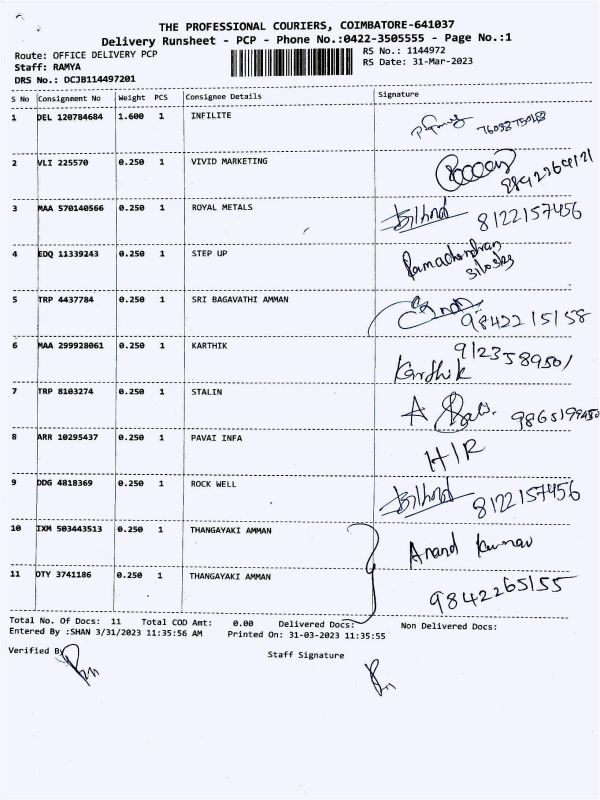 THE PROFESSIONAL COURIERS, COIMBATORE-641037
Delivery Runsheet - PCP - Phone No.:0422-3505555 - Page No.:1
Route: OFFICE DELIVERY PCP
RS No.: 1144972
Staff: RAMYA
RS Date: 31-Mar-2023
DRS No.: DCJB114497201
S No Consignment No Weight PCS Consignee Details Signature
1 DEL 120784684 1.600 1 INFILITE
2 VLI 225570 0.250 1 VIVID MARKETING
3 MAA 570140566 0.250 1 ROYAL METALS 8122157456
4 EDQ 11339243 0.250 1 STEP UP Ramachandran
5 TRP 4437784 0.250 1 SRI BAGAVATHI AMMAN 9842215158
6 MAA 299928061 0.250 1 KARTHIK 9123589501
Karthik
7 TRP 8103274 0.250 1 STALIN
8 ARR 10295437 0.250 1 PAVAI INFA H/R
9 DDG 4818369 0.250 1 ROCK WELL 8122157456
10 IXM 503443513 0.250 1 THANGAYAKI AMMAN Anand Kumar
11 OTY 3741186 0.250 1 THANGAYAKI AMMAN 9842265155
Total No. Of Docs: 11 Total COD Amt: 0.00 Delivered Docs: Non Delivered Docs:
Entered By :SHAN 3/31/2023 11:35:56 AM Printed On: 31-03-2023 11:35:55
Verified By
Staff Signature